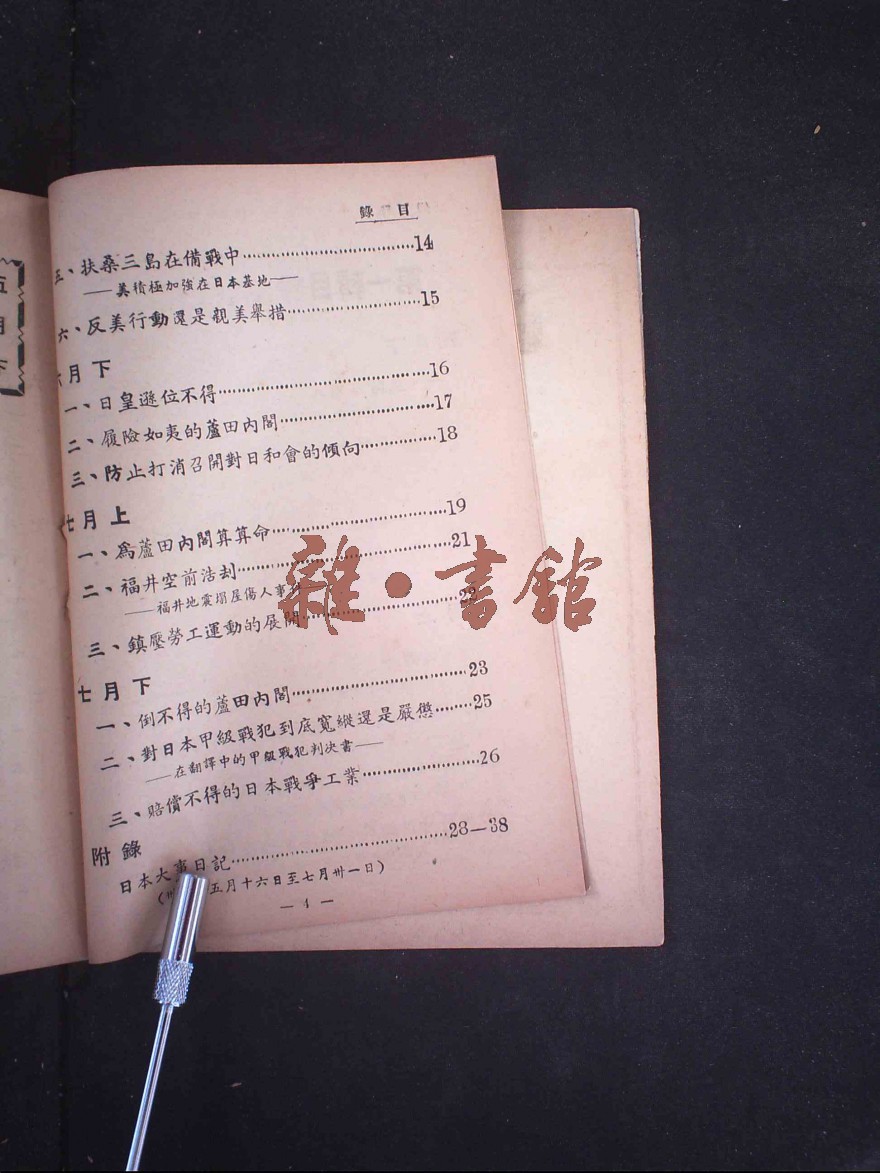 錄目
五、扶桑三島在備戰中……14
——美積極加強在日本基地——
六、反美行動還是親美舉措……15
六月下
一、日皇遜位不得……16
二、履險如夷的蘆田內閣……17
三、防止打消召開對日和會的傾向……18
七月上
一、為蘆田內閣算算命……19
二、福井空前浩刦……21
——福井地震塌屋傷人事
三、鎮壓勞工運動的展開……22
七月下
一、倒不得的蘆田內閣……23
二、對日本甲級戰犯到底寬縱還是嚴懲……25
——在翻譯中的甲級戰犯判決書——
三、賠償不得的日本戰爭工業……26
附錄
日本大事日記……28—38
五月十六日至七月卅一日）
— 4 —
雜·書館
五月